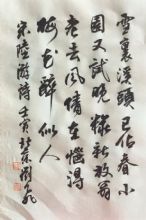 雪裏溪頭已佔春小
園又試晚粧新放翁
老去風情在惱得
梅花醉似人
宋陸游詩壬寅